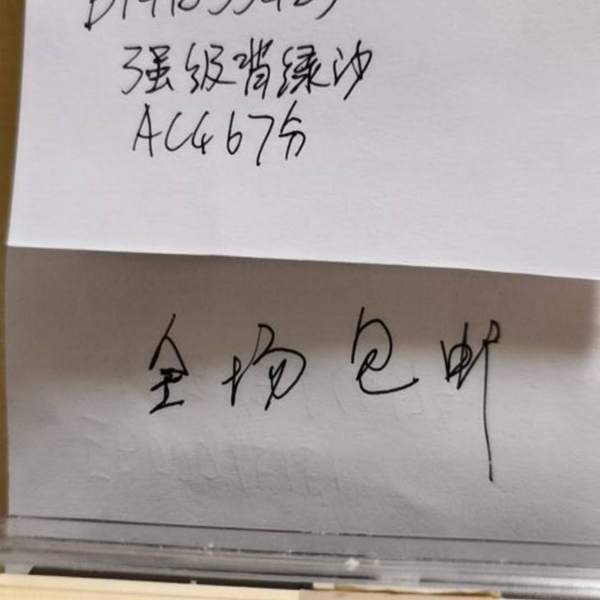 强级背绿沙
AC467分
全场包邮